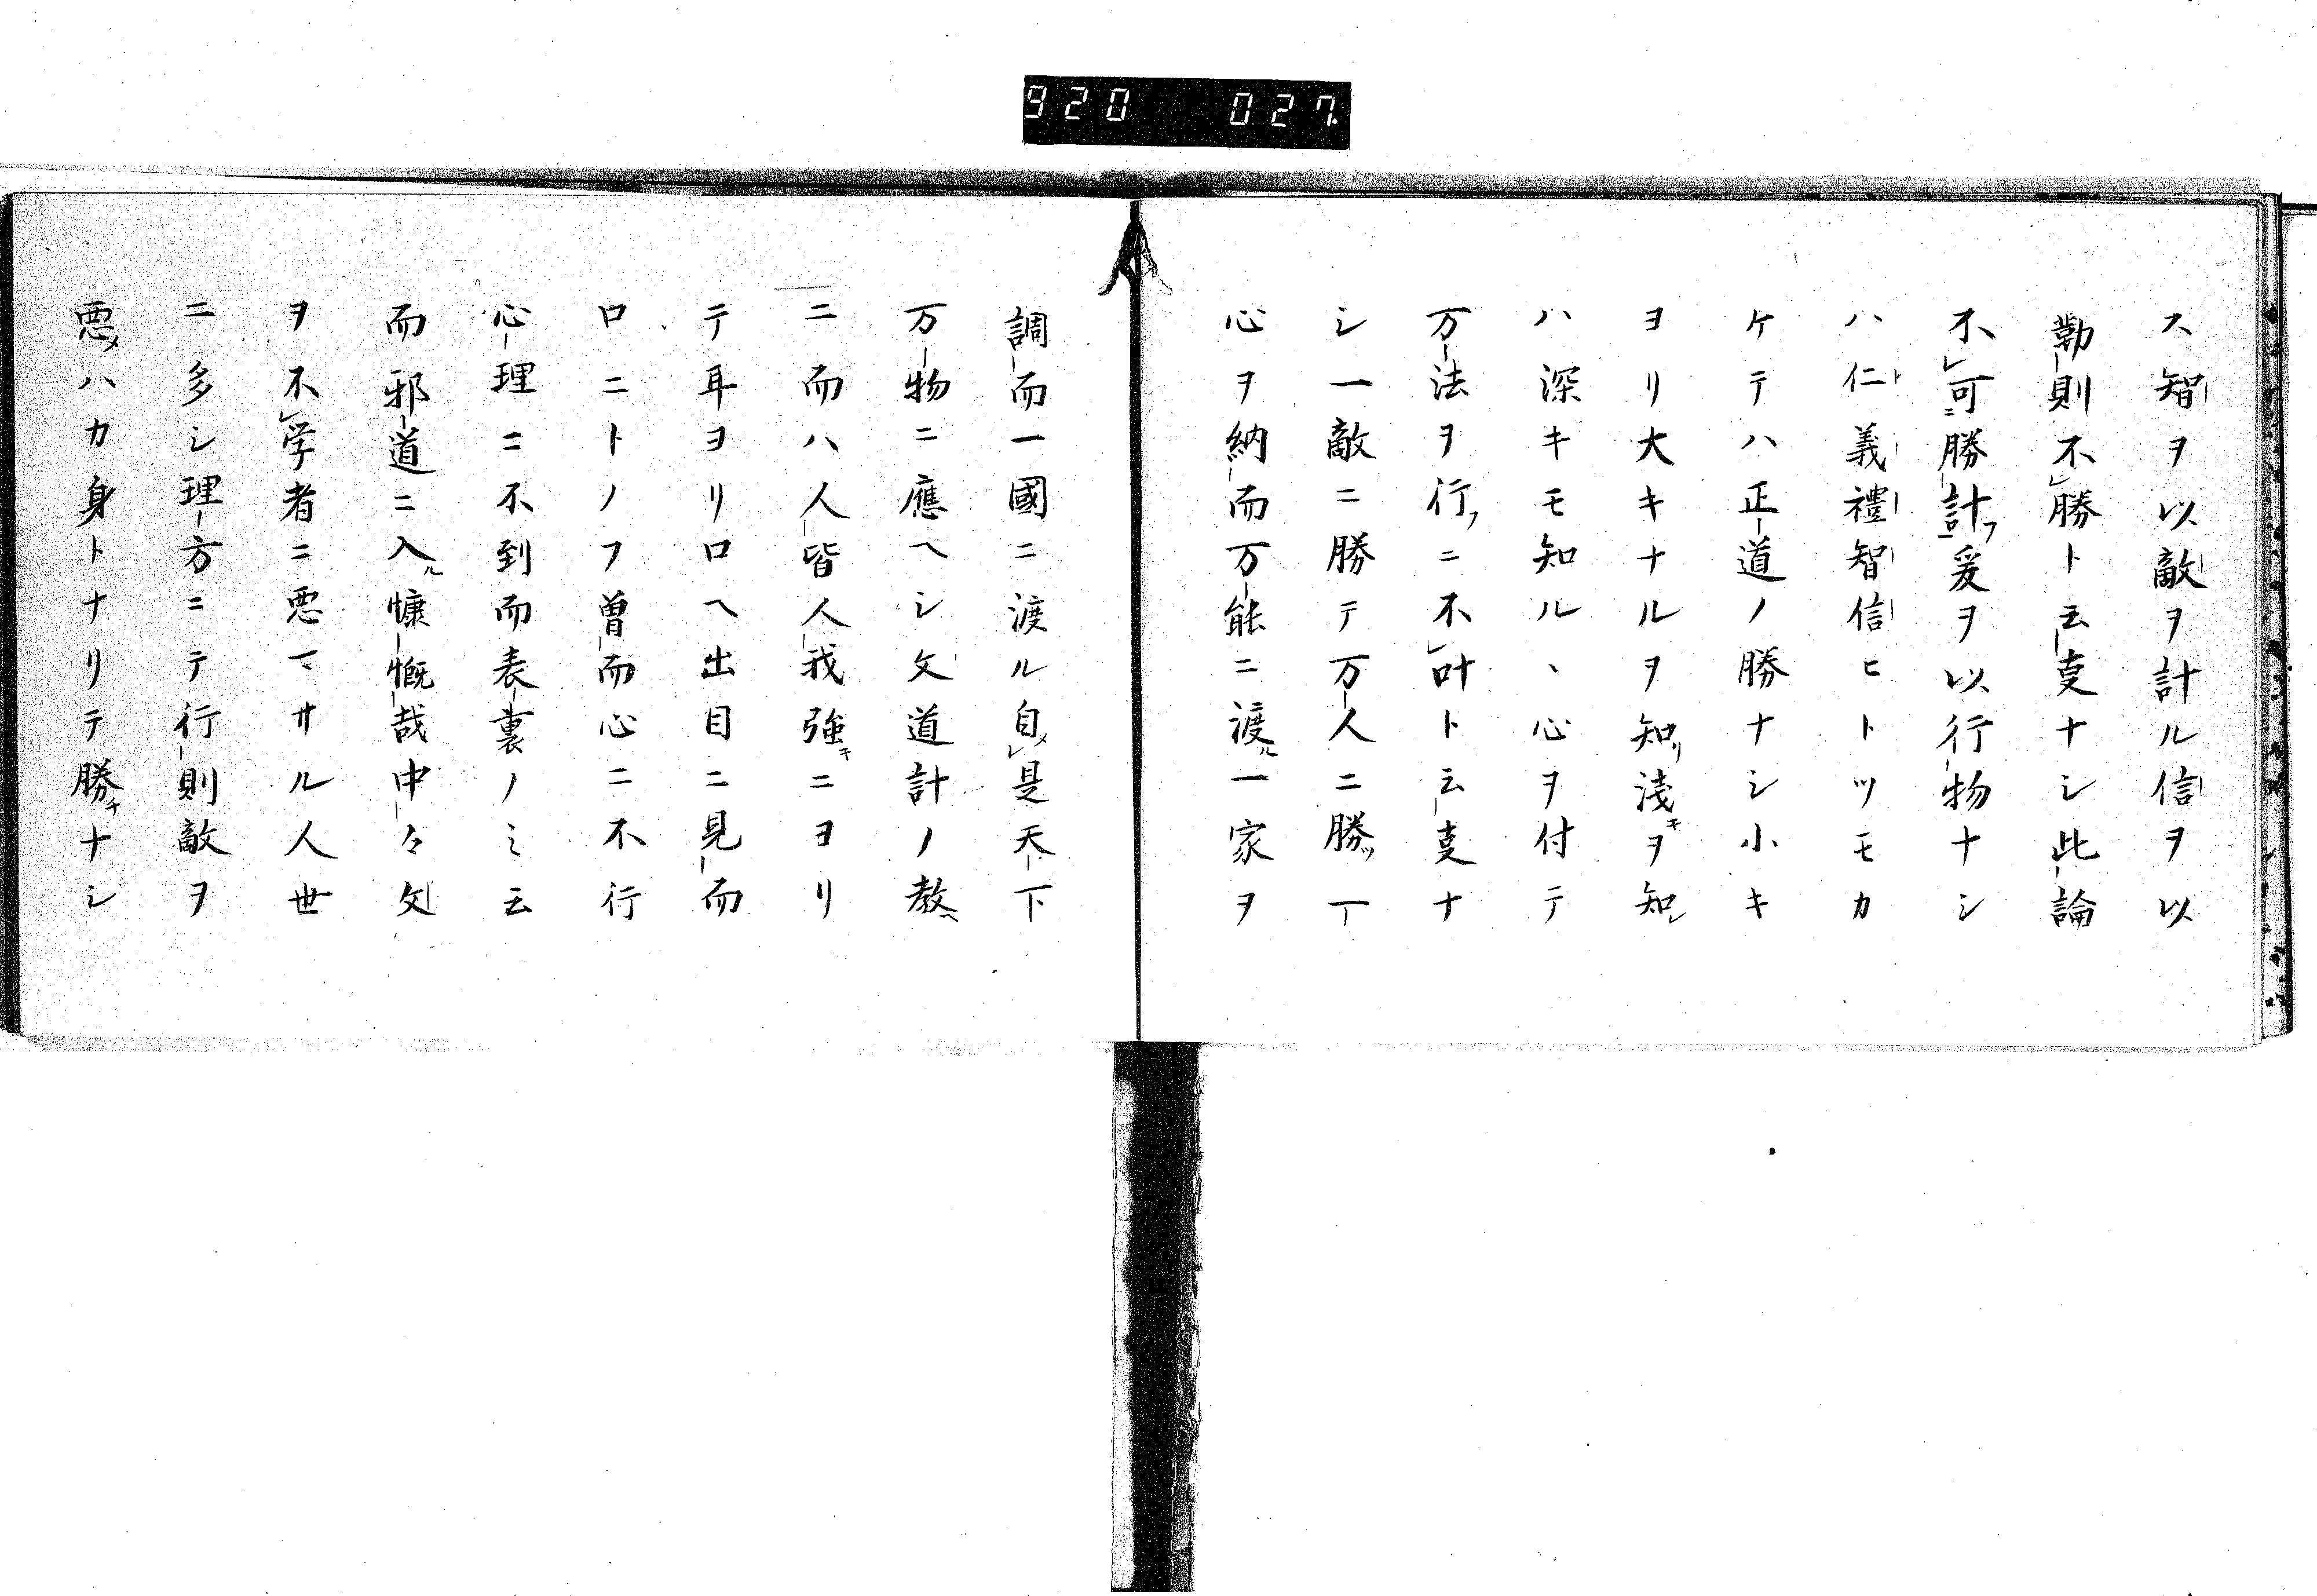 920 027
ス智ヲ以敵ヲ計ル信ヲ以
勤則不勝ト云叓ナシ此論
不可勝計フ爰ヲ以行物ナシ
ハ仁義禮智信ヒトツモカ
ケテハ正道ノ勝ナシ小キ
ヨリ大キナルヲ知リ淺キヲ知レ
ハ深キモ知ル、心ヲ付テ
万法ヲ行フニ不叶ト云叓ナ
シ一敵ニ勝テ万人ニ勝ツヿ
心ヲ納而万能ニ渡ル一家ヲ
調而一國ニ渡ル自是天下
万物ニ應ヘシ文道計ノ教ヘ
ニ而ハ人皆人我強キニヨリ
テ耳ヨリ口ヘ出目ニ見而
口ニトノフ曽而心ニ不行
心理ニ不到而表裏ノミ云
而邪道ニ入ル慷慨哉中々文
ヲ不学者ニ悪マサル人世
ニ多シ理方ニテ行則敵ヲ
悪メハカ身トナリテ勝チナシ